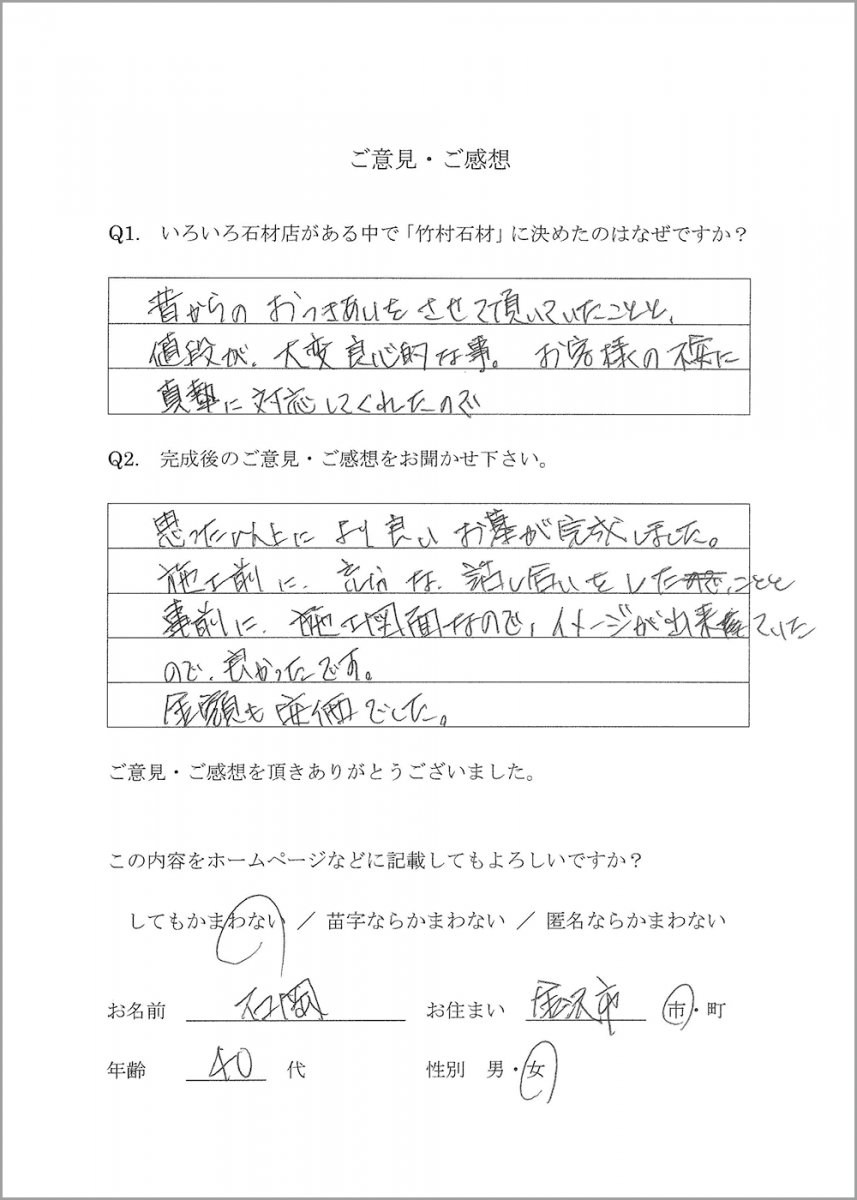 ご意見・ご感想
Q1. いろいろ石材店がある中で「竹村石材」に決めたのはなぜですか？
昔からの おつきあいを させて頂いていたことと、
値段が、大変良心的な事。 お客様の に
真摯に対応してくれたので
Q2. 完成後のご意見・ご感想をお聞かせ下さい。
思った以上に より良い お墓が完成しました。
施工前に、 な、話し合いをした こと
事前に、施工図面なので、イメージが出来ていた
ので、良かったです。
金額も 安価でした。
ご意見・ご感想を頂きありがとうございました。
この内容をホームページなどに記載してもよろしいですか？
してもかまわない ／ 苗字ならかまわない ／ 匿名ならかまわない
お名前 石岡 お住まい 金沢市 市・町
年齢 40 代 性別 男・女